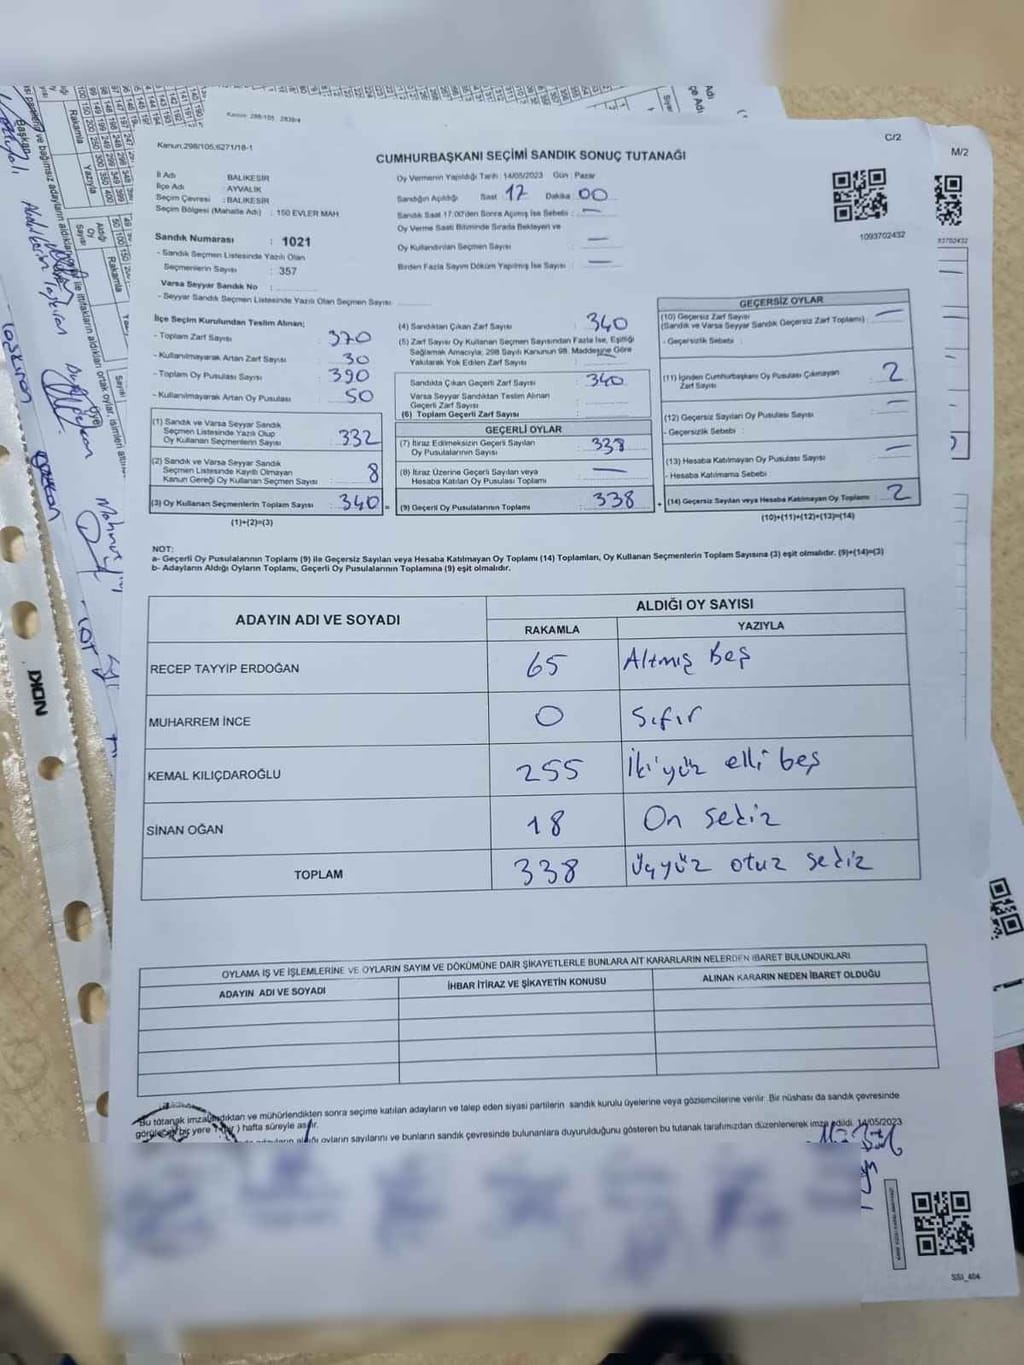 Kanun:298/105,6271/18-1
C/2
M/2
CUMHURBAŞKANI SEÇİMİ SANDIK SONUÇ TUTANAĞI
İl Adı : BALIKESİR
İlçe Adı : AYVALIK
Seçim Çevresi : BALIKESİR
Seçim Bölgesi (Mahalle Adı) : 150 EVLER MAH
Sandık Numarası : 1021
- Sandık Seçmen Listesinde Yazılı Olan
Seçmenlerin Sayısı : 357
Varsa Seyyar Sandık No :
- Seyyar Sandık Seçmen Listesinde Yazılı Olan Seçmen Sayısı
Oy Vermenin Yapıldığı Tarih : 14/05/2023 Gün : Pazar
Sandığın Açıldığı Saat 17 Dakika 00
Sandık Saat 17.00'den Sonra Açılmış İse Sebebi : —
Oy Verme Saati Bitiminde Sırada Bekleyen ve
Oy Kullandırılan Seçmen Sayısı —
Birden Fazla Sayım Döküm Yapılmış İse Sayısı : —
1093702432
İlçe Seçim Kurulundan Teslim Alınan;
- Toplam Zarf Sayısı : 370
- Kullanılmayarak Artan Zarf Sayısı : 30
- Toplam Oy Pusulası Sayısı : 390
- Kullanılmayarak Artan Oy Pusulası : 50
(1) Sandık ve Varsa Seyyar Sandık
Seçmen Listesinde Yazılı Olup
Oy Kullanan Seçmenlerin Sayısı : 332
(2) Sandık ve Varsa Seyyar Sandık
Seçmen Listesinde Kayıtlı Olmayan
Kanun Gereği Oy Kullanan Seçmen Sayısı : 8
(3) Oy Kullanan Seçmenlerin Toplam Sayısı : 340
(1)+(2)=(3)
(4) Sandıktan Çıkan Zarf Sayısı : 340
(5) Zarf Sayısı Oy Kullanan Seçmen Sayısından Fazla İse, Eşitliği
Sağlamak Amacıyla; 298 Sayılı Kanunun 98. Maddesine Göre
Yakılarak Yok Edilen Zarf Sayısı
Sandıkta Çıkan Geçerli Zarf Sayısı : 340
Varsa Seyyar Sandıktan Teslim Alınan
Geçerli Zarf Sayısı
(6) Toplam Geçerli Zarf Sayısı
GEÇERLİ OYLAR
(7) İtiraz Edilmeksizin Geçerli Sayılan
Oy Pusulalarının Sayısı : 338
(8) İtiraz Üzerine Geçerli Sayılan veya
Hesaba Katılan Oy Pusulası Toplamı : —
(9) Geçerli Oy Pusulalarının Toplamı : 338
GEÇERSİZ OYLAR
(10) Geçersiz Zarf Sayısı
(Sandık ve Varsa Seyyar Sandık Geçersiz Zarf Toplamı) : —
- Geçersizlik Sebebi :
(11) İçinden Cumhurbaşkanı Oy Pusulası Çıkmayan
Zarf Sayısı : 2
(12) Geçersiz Sayılan Oy Pusulası Sayısı : —
- Geçersizlik Sebebi :
(13) Hesaba Katılmayan Oy Pusulası Sayısı : —
- Hesaba Katılmama Sebebi :
(14) Geçersiz Sayılan veya Hesaba Katılmayan Oy Toplamı : 2
(10)+(11)+(12)+(13)=(14)
NOT:
a- Geçerli Oy Pusulalarının Toplamı (9) ile Geçersiz Sayılan veya Hesaba Katılmayan Oy Toplamı (14) Toplamları, Oy Kullanan Seçmenlerin Toplam Sayısına (3) eşit olmalıdır. (9)+(14)=(3)
b- Adayların Aldığı Oyların Toplamı, Geçerli Oy Pusulalarının Toplamına (9) eşit olmalıdır.
ADAYIN ADI VE SOYADI
ALDIĞI OY SAYISI
RAKAMLA YAZIYLA
RECEP TAYYİP ERDOĞAN 65 Altmış Beş
MUHARREM İNCE 0 Sıfır
KEMAL KILIÇDAROĞLU 255 İki yüz elli beş
SİNAN OĞAN 18 On sekiz
TOPLAM 338 Üçyüz otuz sekiz
OYLAMA İŞ VE İŞLEMLERİNE VE OYLARIN SAYIM VE DÖKÜMÜNE DAİR ŞİKAYETLERLE BUNLARA AİT KARARLARIN NELERDEN İBARET BULUNDUKLARI
ADAYIN ADI VE SOYADI İHBAR İTİRAZ VE ŞİKAYETİN KONUSU ALINAN KARARIN NEDEN İBARET OLDUĞU
Bu tutanak imzalandıktan ve mühürlendikten sonra seçime katılan adayların ve talep eden siyasi partilerin sandık kurulu üyelerine veya gözlemcilerine verilir. Bir nüshası da sandık çevresinde
görülecek bir yere hafta süreyle asılır.
oyların sayılarını ve bunların sandık çevresinde bulunanlara duyurulduğunu gösteren bu tutanak tarafımızdan düzenlenerek imza edildi. 14/05/2023
SSI_404
NOKI